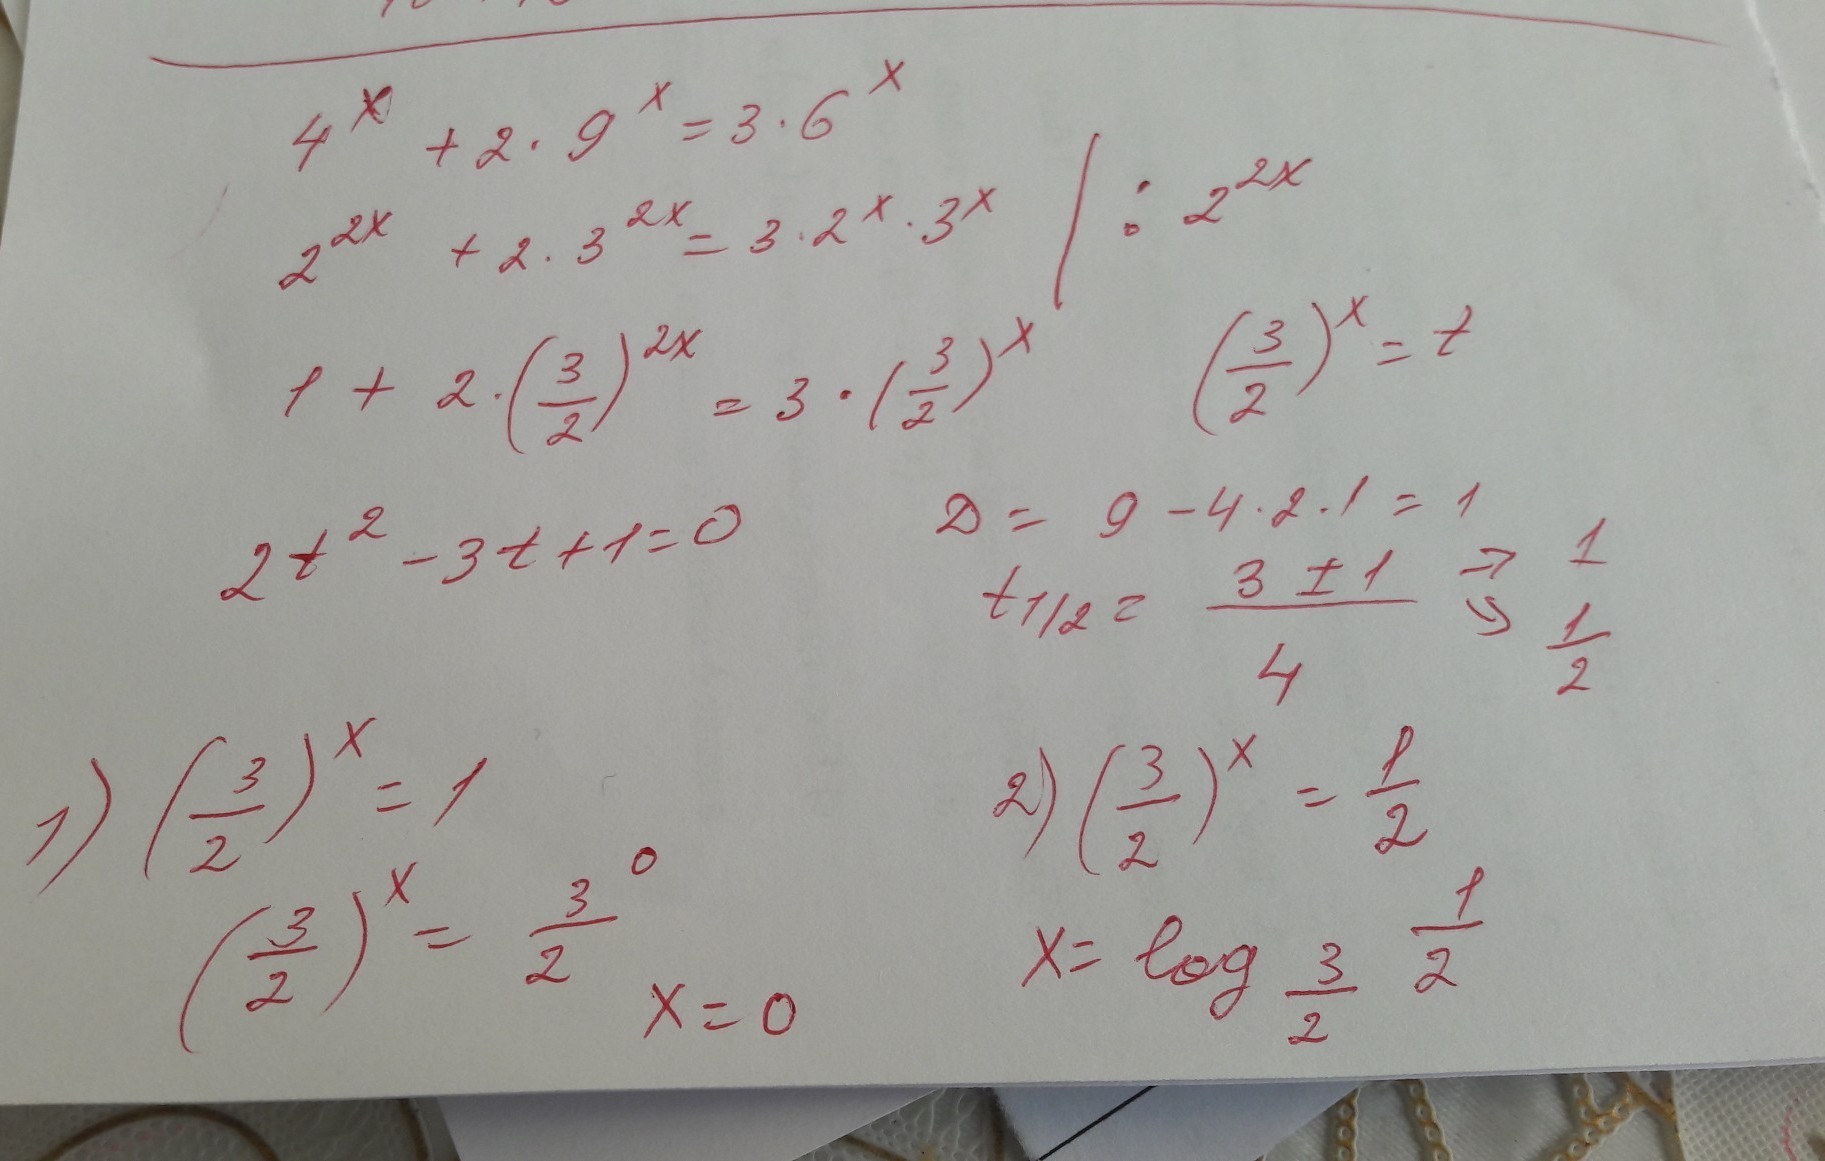 4^x + 2 · 9^x = 3 · 6^x
2^{2x} + 2 · 3^{2x} = 3 · 2^x · 3^x | : 2^{2x}
1 + 2 · (3/2)^{2x} = 3 · (3/2)^x (3/2)^x = t
2t^2 - 3t + 1 = 0 D = 9 - 4 · 2 · 1 = 1
t_{1/2} = (3 ± 1)/4 → 1
↘ 1/2
1) (3/2)^x = 1 2) (3/2)^x = 1/2
(3/2)^x = 3/2^0 x = log_{3/2} 1/2
x = 0